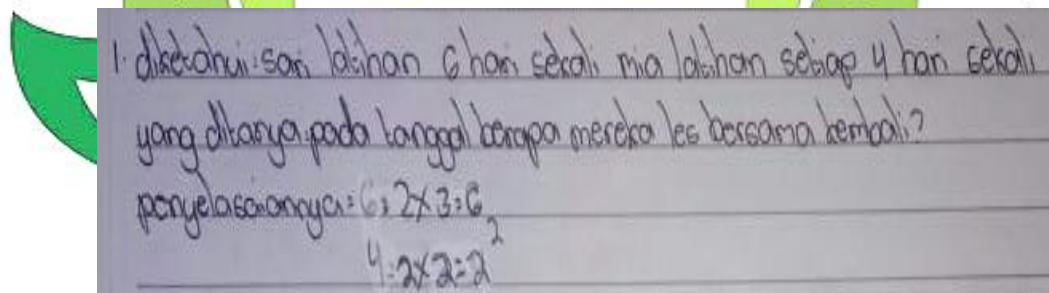 1. diketahui: sari latihan 6 hari sekali mia latihan setiap 4 hari sekali
yang ditanya: pada tanggal berapa mereka les bersama kembali?
penyelesaiannya: 6 = 2x3 = 6
4 = 2x2 = 2²